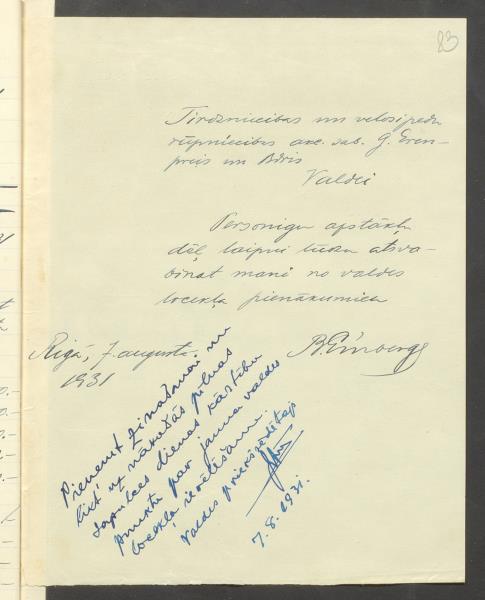 83
Tirdzniecības un velosipedu
rūpniecības akc. sab. G. Eren-
preis un Bdris
Valdei
Personīgu apstākļu
dēļ laipni lūdzu atsva-
binat mani no valdes
locekļa pienākumiem
Rīgā, 7. augusta.
1931
Pieņemt zināšanai un
likt uz nākošās pilnas
sapulces dienas kārtību
punktu par jauna valdes
locekļa ievēlēšanu.
Valdes priekšsēdētajs
7.8.1931.